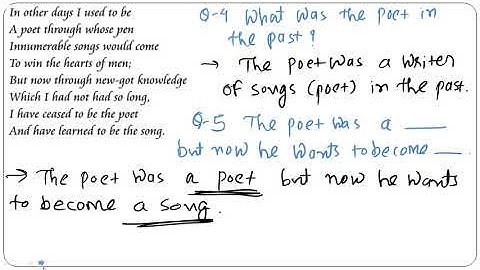 In other days I used to be
A poet through whose pen
Innumerable songs would come
To win the hearts of men;
But now through new-got knowledge
Which I had not had so long,
I have ceased to be the poet
And have learned to be the song.
Q-4 What was the poet in
the past?
→ The poet was a writer
of songs (poet) in the past.
Q-5 The poet was a ___
but now he wants to become ___.
→ The poet was a poet but now he wants
to become a song.